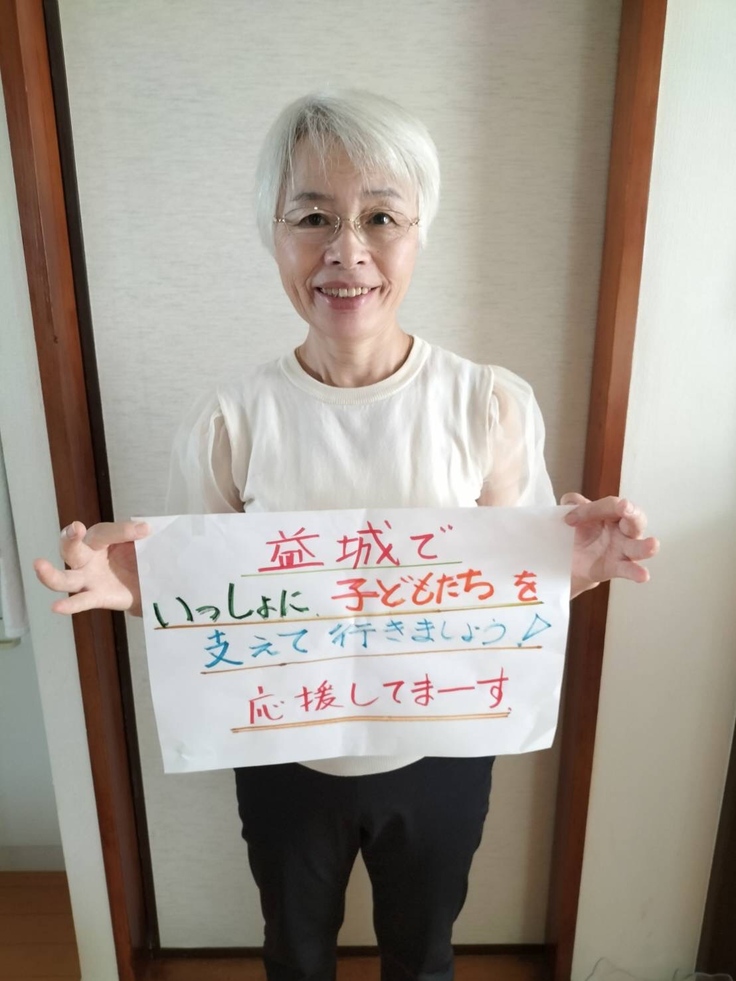 益城で
いっしょに、子どもたちを
支えて行きましょう!
応援してまーす